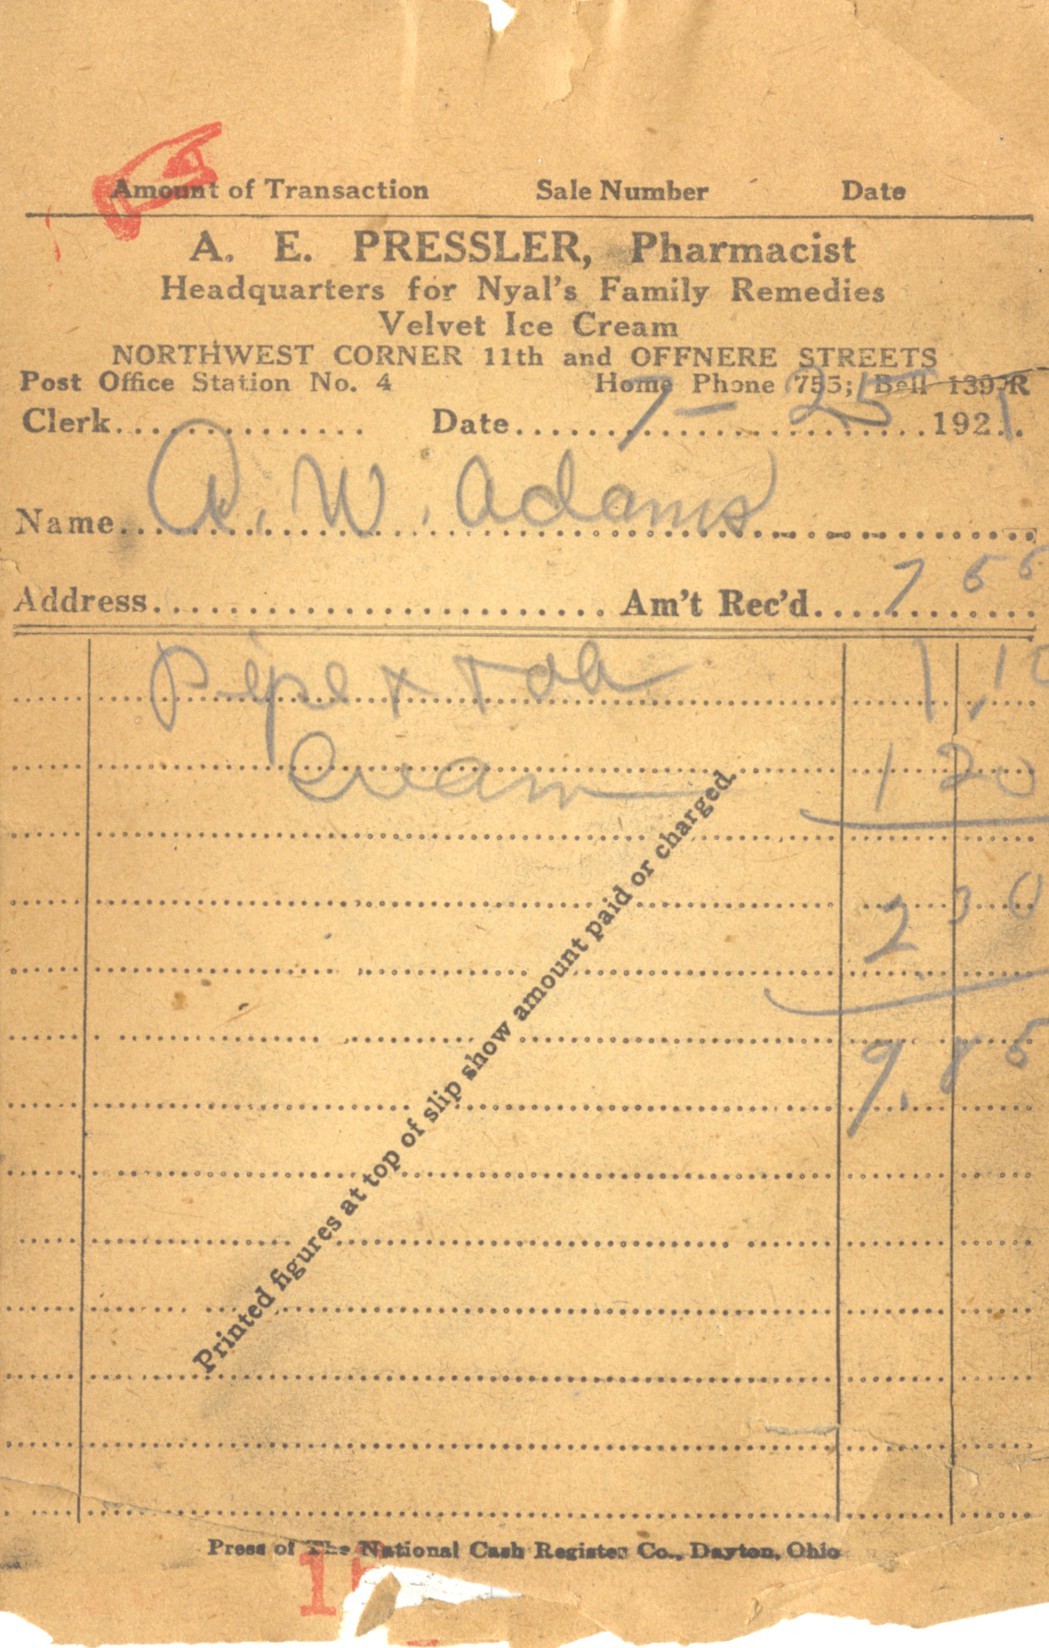 Amount of Transaction Sale Number Date
A. E. PRESSLER, Pharmacist
Headquarters for Nyal's Family Remedies
Velvet Ice Cream
NORTHWEST CORNER 11th and OFFNERE STREETS
Post Office Station No. 4 Home Phone 755; Bell 139-R
Clerk.............. Date 7-25 1921
Name A. W. Adams
Address........................ Am't Rec'd. 7 55
Pipe + Tob 1,10
Cream 1 20
2 30
9.85
Printed figures at top of slip show amount paid or charged.
Press of The National Cash Register Co., Dayton, Ohio